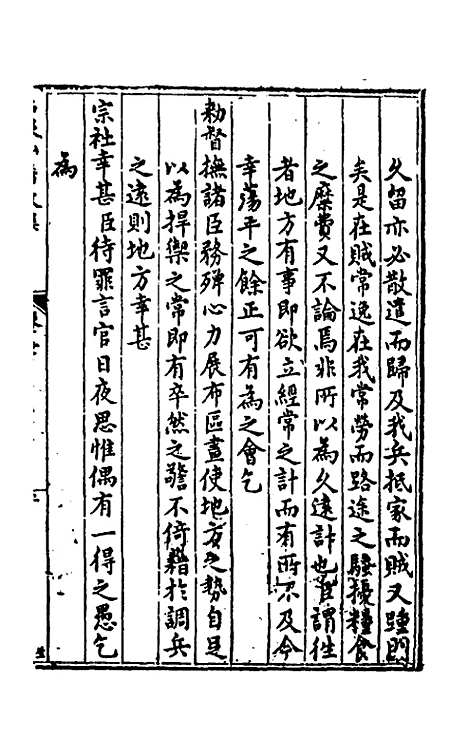 久留亦必散遣而歸及我兵抵家而賊又踵門
矣是在賊常逸在我常勞而路途之騷擾糧食
之糜費又不論焉非所以為久遠計也臣謂往
者地方有事即欲立經常之計而有所不及今
幸蕩平之餘正可有為之會乞
勑督撫諸臣務殫心力展布區畫使地方之勢自足
以為捍禦之常即有卒然之警不倚藉於調兵
之遠則地方幸甚
宗社幸甚臣待罪言官日夜思惟偶有一得之愚乞
為